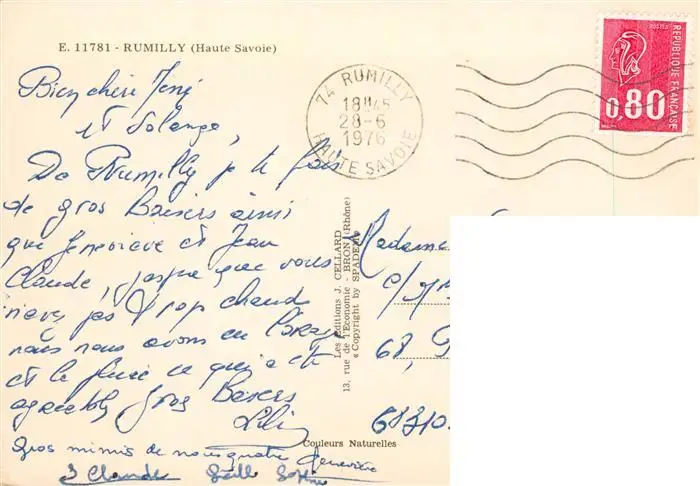 E. 11781 - RUMILLY (Haute Savoie)
74 RUMILLY
18H45
28-6
1976
HAUTE SAVOIE
POSTES
REPUBLIQUE FRANÇAISE
0,80
Bien chère
et Solange,
De Rumilly je te fais
de gros Baisers ainsi
que Geneviève et Jean
Claude, j'espère que vous
n'avez pas trop chaud
nous nous avons eu l'orage
et la pluie ce qui a été
agréable Gros Baisers
Lili
Gros mimis de nous quatre Geneviève
J Claude Gaëlle
Les éditions J. CELLARD
13, rue de l'Economie - BRON (Rhône)
« Copyright by SPADEM »
Couleurs Naturelles
Madame
68,
68310